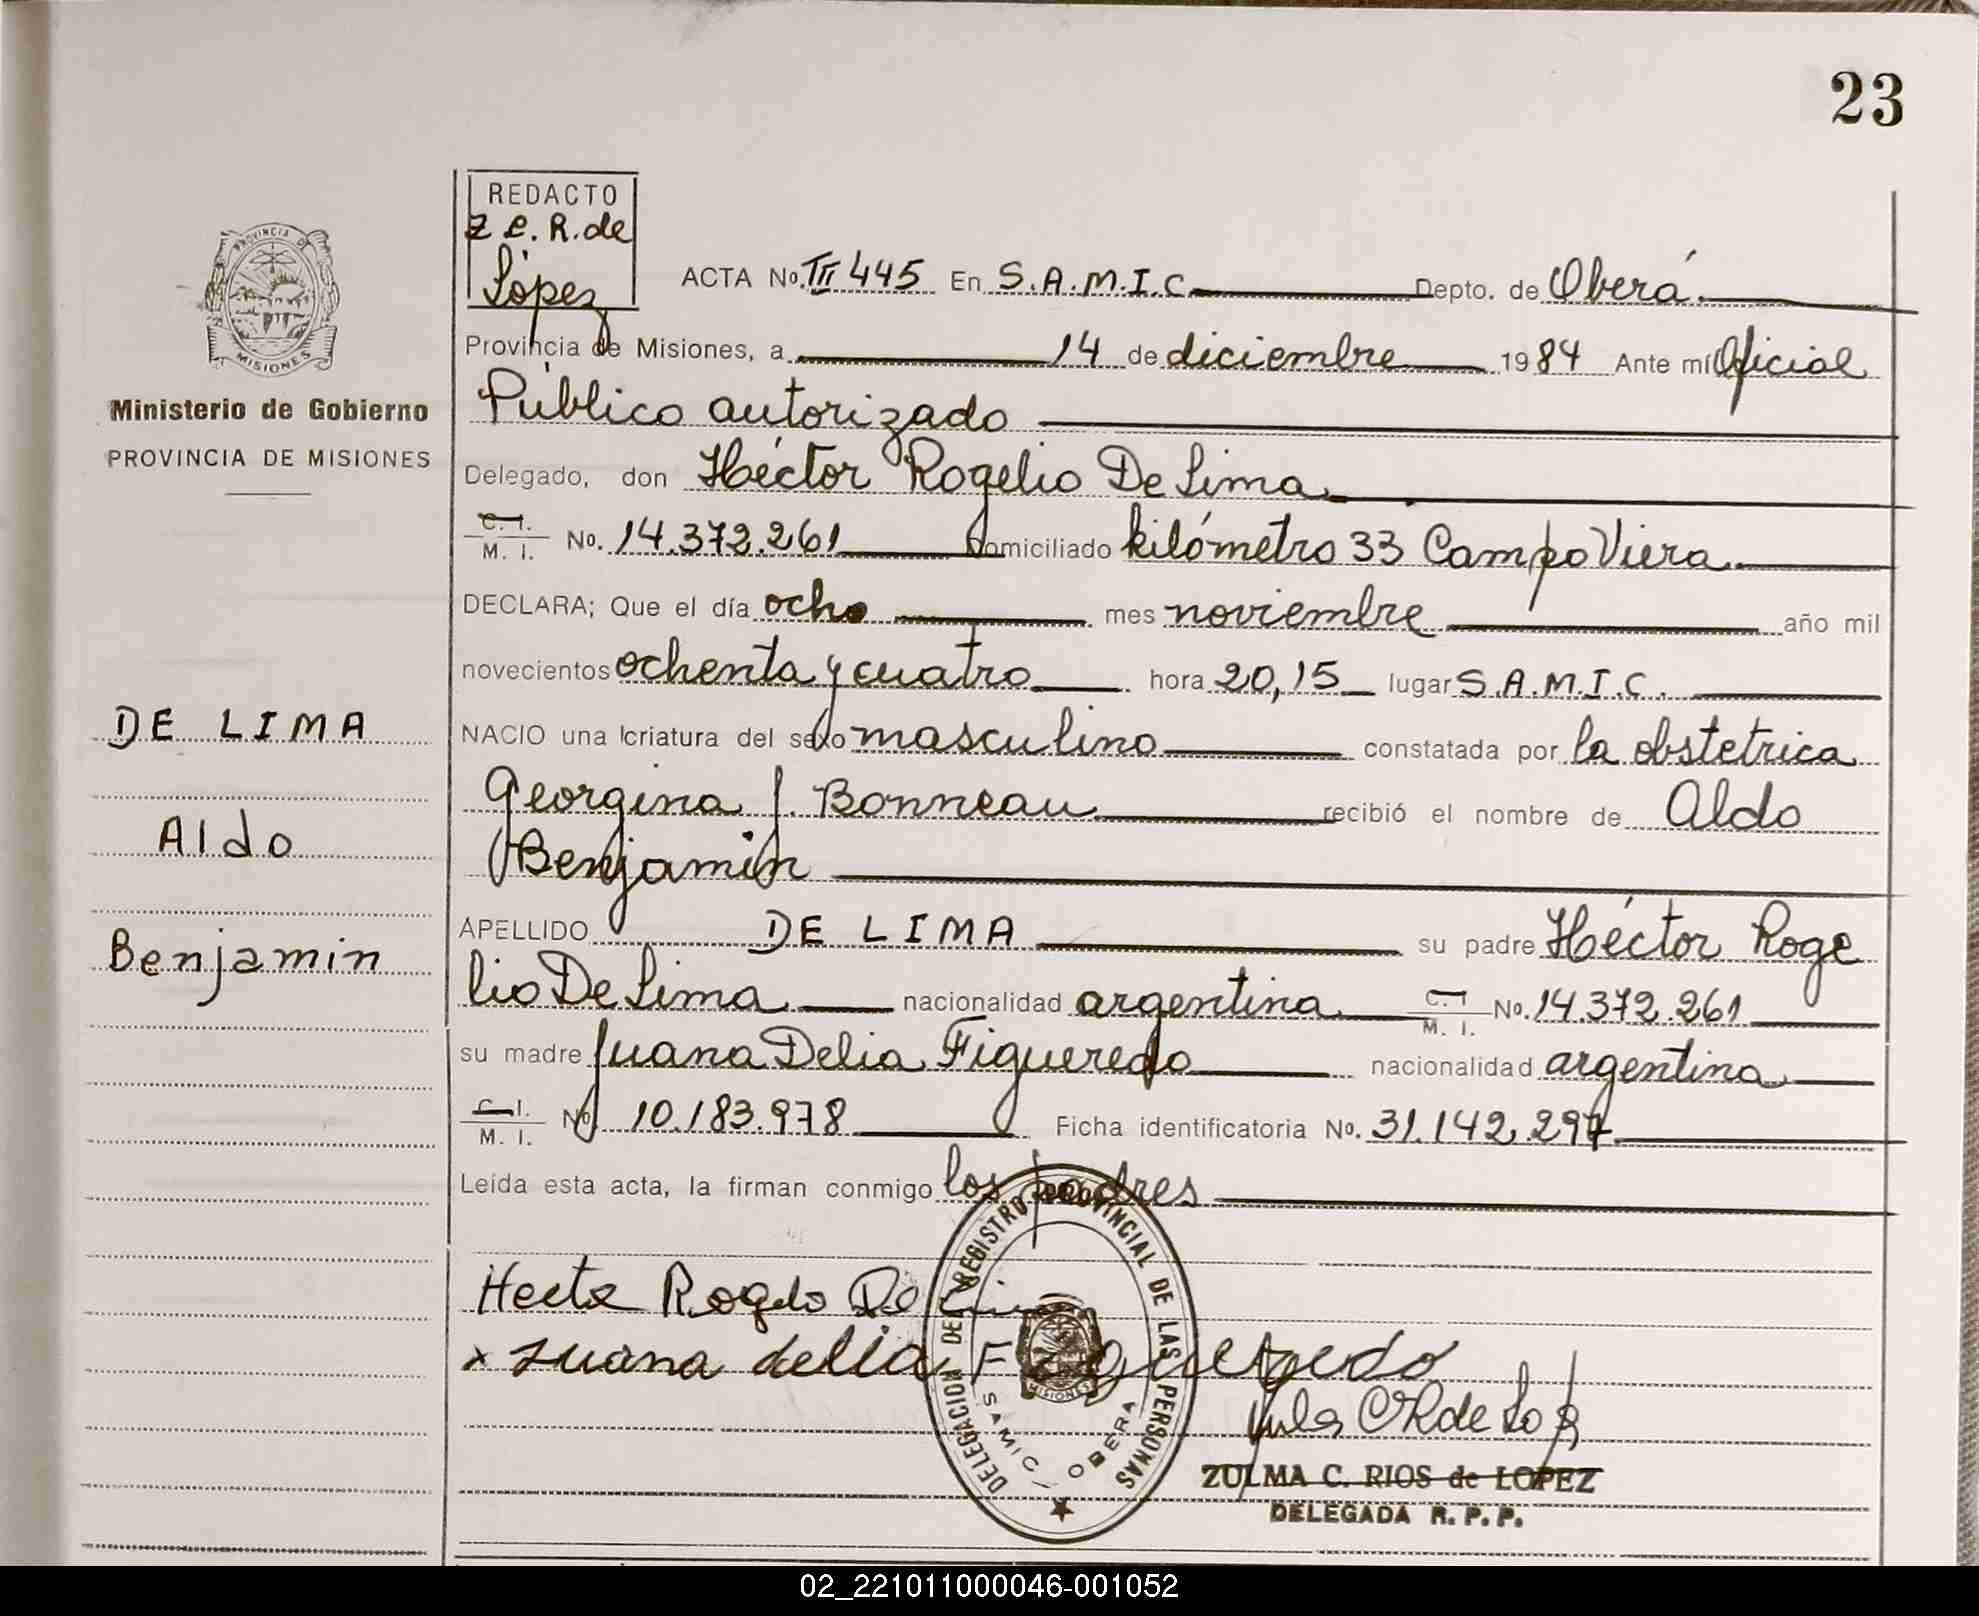 23
REDACTO
Z C. R. de
López
ACTA No. III 445 En S.A.M.I.C. Depto. de Oberá
Provincia de Misiones, a 14 de diciembre 1984 Ante mí Oficial
Público autorizado
Delegado, don Héctor Rogelio De Lima
C. I. M. I. No. 14.372.261 domiciliado kilómetro 33 Campo Viera
DECLARA; Que el día ocho mes noviembre año mil
novecientos ochenta y cuatro hora 20,15 lugar S.A.M.I.C.
NACIO una criatura del sexo masculino constatada por la obstetrica
Georgina J. Bonneau recibió el nombre de Aldo
Benjamin
APELLIDO DE LIMA su padre Héctor Roge
lio De Lima nacionalidad argentina C. I. M. I. No. 14.372.261
su madre Juana Delia Figueredo nacionalidad argentina
C. I. M. I. No 10.183.978 Ficha identificatoria No. 31.142.297
Leída esta acta, la firman conmigo los padres
Hecto Rogelo De Lima
x Juana delia Figueredo
ZULMA C. RIOS de LOPEZ
DELEGADA R. P. P.
DELEGACION DEL REGISTRO PROVINCIAL DE LAS PERSONAS
SAMIC / OBERA
MISIONES
PROVINCIA DE
MISIONES
Ministerio de Gobierno
PROVINCIA DE MISIONES
DE LIMA
Aldo
Benjamin
02_221011000046-001052